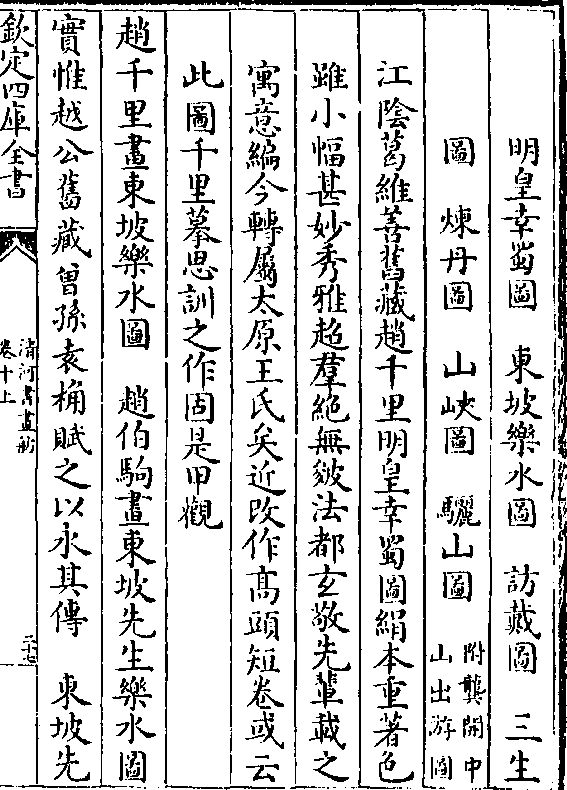 明皇幸蜀圖　東坡樂水圖　訪戴圖　三生
圖　煉丹圖　山峽圖　驪山圖　附龔開中山出游圖
江陰葛維善舊藏趙千里明皇幸蜀圖絹本重著色
雖小幅甚妙秀雅超羣絕無皴法都玄敬先輩載之
寓意編今轉屬太原王氏矣近改作高頭短卷或云
此圖千里摹思訓之作固是甲觀
趙千里畫東坡樂水圖　趙伯駒畫東坡先生樂水圖
實惟越公舊藏曾孫袁桷賦之以永其傳　東坡先
欽定四庫全書
清河書畫舫
卷十上
三七